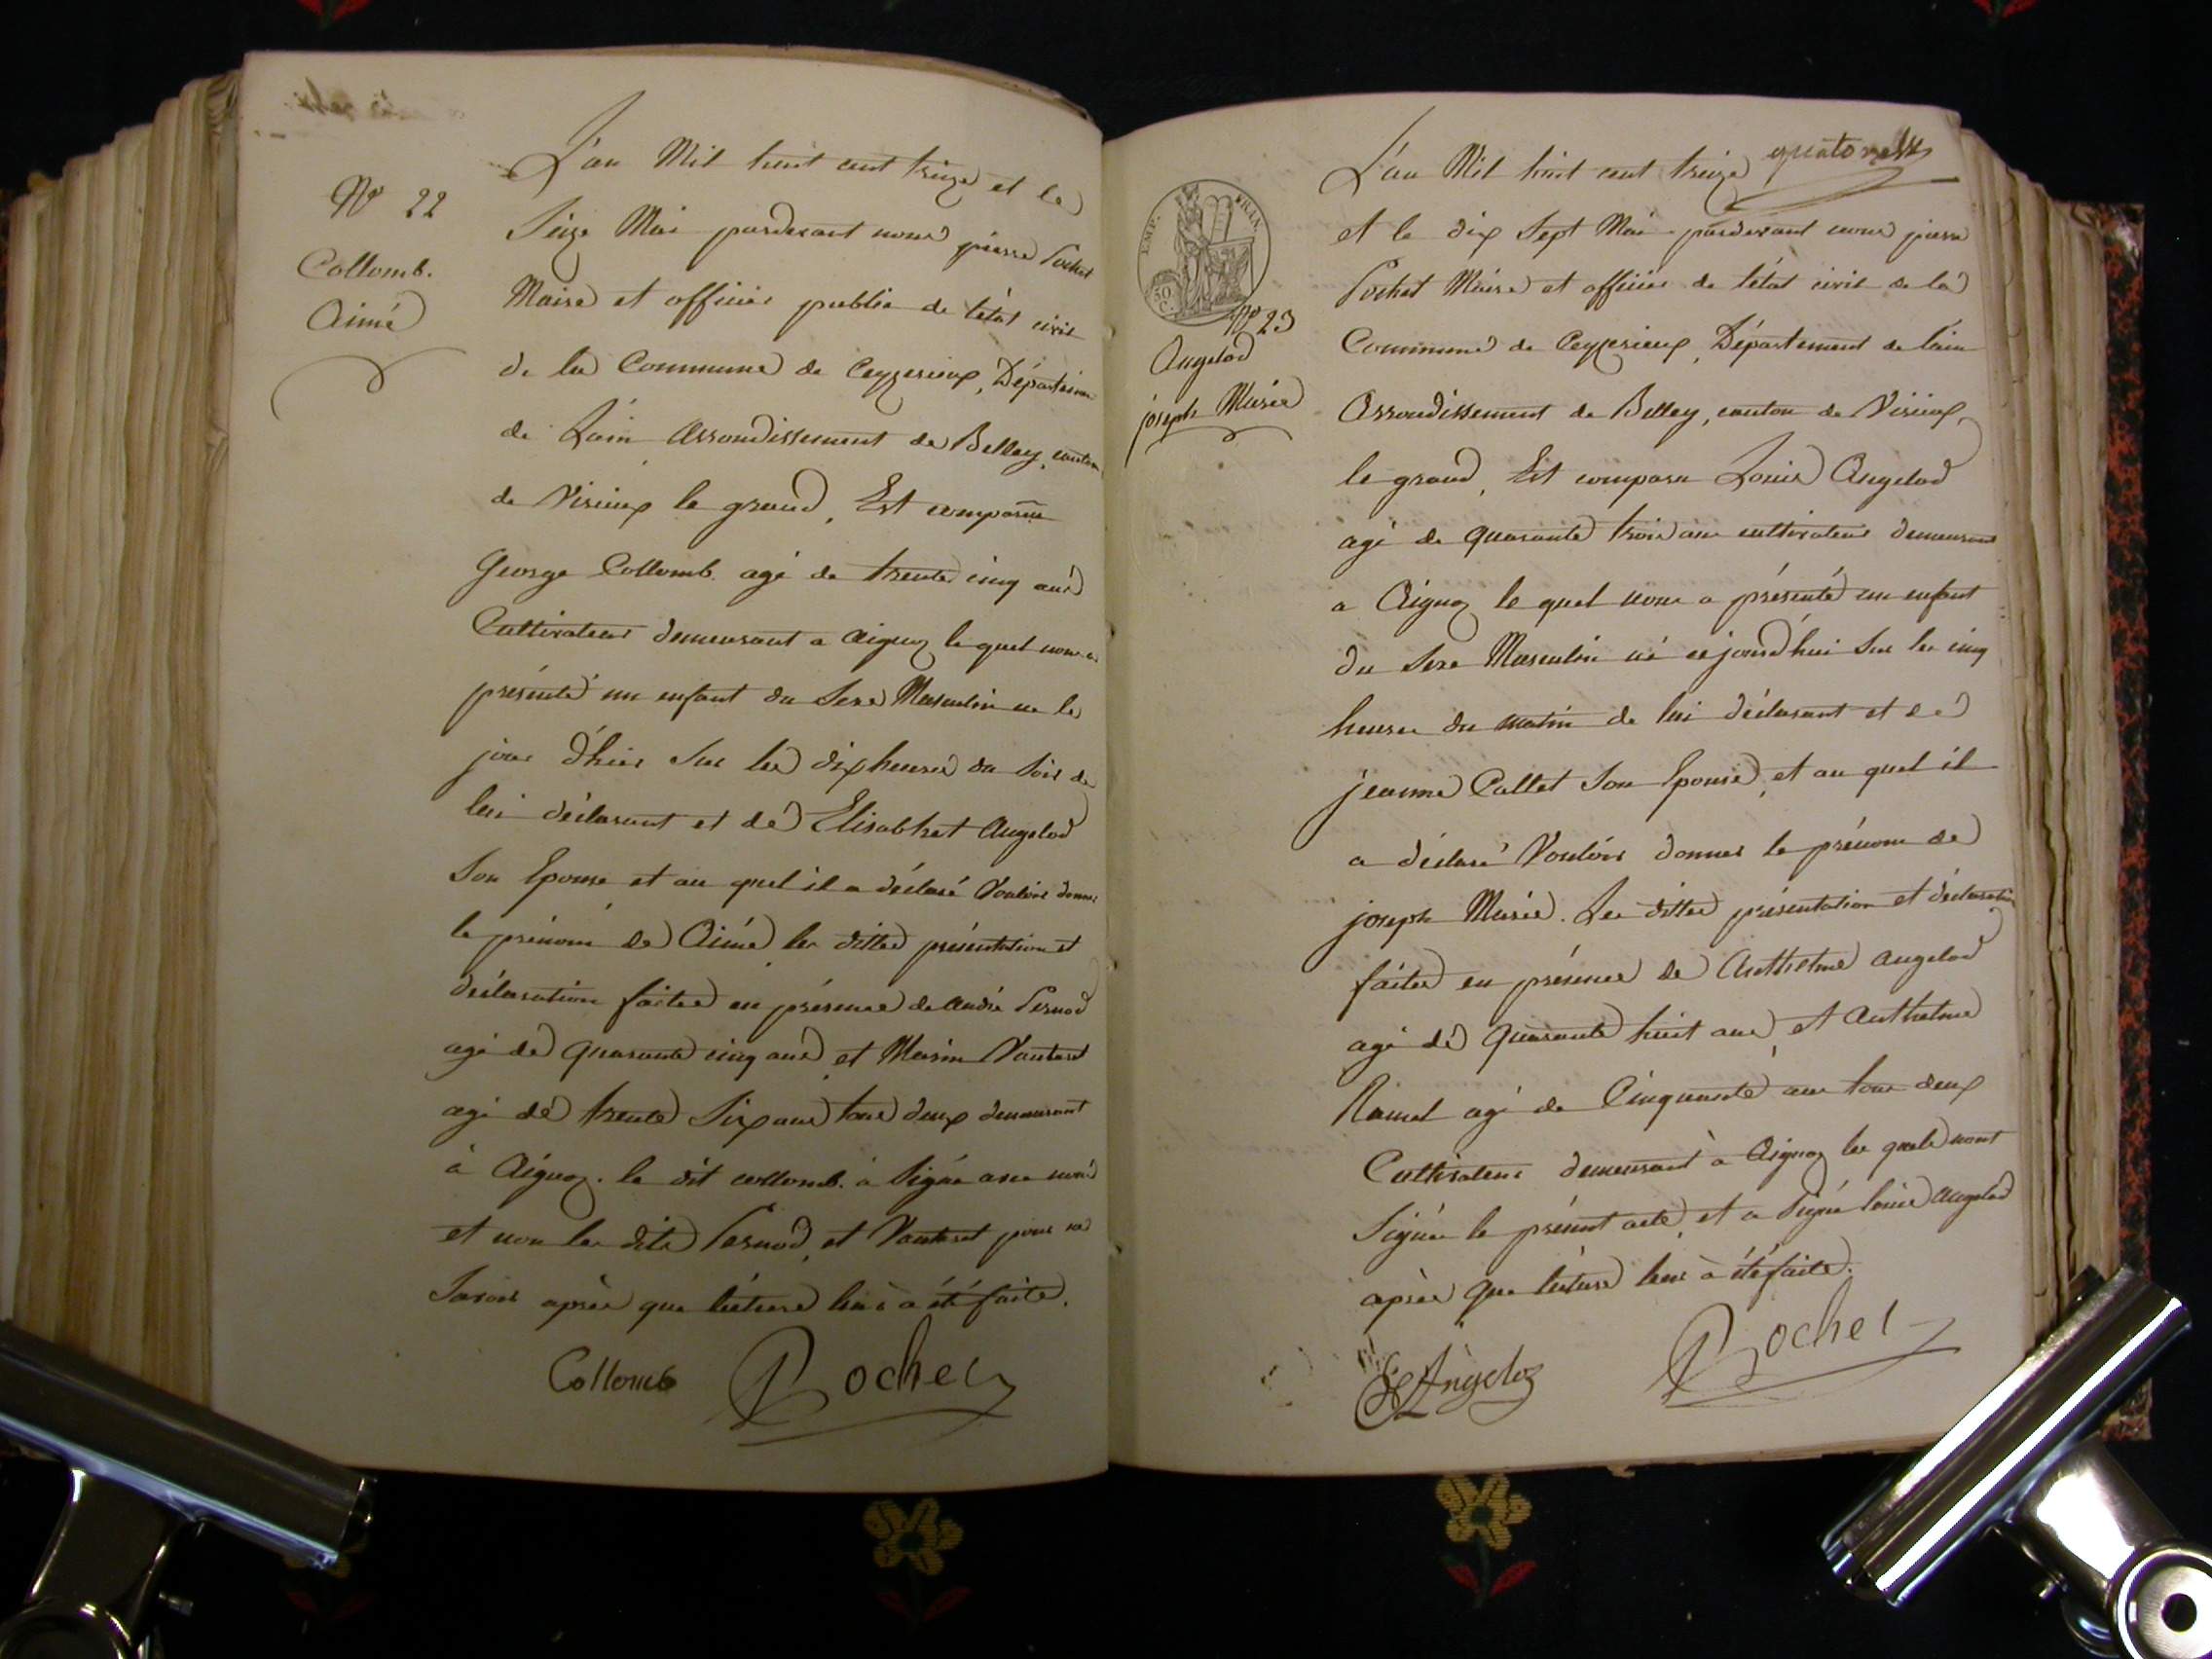 Nº 22
Collomb.
Aimé
L'an Mil huit cent treize et le
Seize Mai pardevant nous pierre Pochet
Maire et officier public de l'état civil
de la Commune de Ceyzerieux, Département
de Lain Arrondissement de Belley, canton
de Virieux le grand, Est comparu
George Collomb. agé de trente cinq ans
Cultivateur demeurant a aignoz le quel nous a
présenté un enfant du Sexe Masculin né le
jour d'hier Sur les dix heures du Soir de
lui déclarant et de Elisabhet Angelod
Son Epouse, et au quel il a déclaré Vouloir donner
le prénom de Aimé, les dittes présentation et
déclaration faites en présence de andré Pernod
agé de quarante cinq ans, et Marin Vauteret
agé de trente Six ans tous deux demeurant
à Aignoz. le dit collomb. a Signé avec nous
et non les dits Pernod, et Vauteret pour ne
Savoir après que lécture leur à été faite.
Collomb Pochet
EMP. FRAN.
50 C.
Nº 23
Angelod
joseph Marie
L'an Mil huit cent treize quatorze
et le dix Sept Mai pardevant nous pierre
Pochet Maire et officier de l'état civil de la
Commune de Ceyzerieux, Département de lain
Arrondissement de Belley, canton de Virieux
le grand, Est comparu Louis Angelod
agé de quarante trois ans cultivateur demeurant
a Aignoz le quel nous a présenté un enfant
du Sexe Masculin né cejourd'hui Sur les cinq
heures du matin de lui déclarant et de
jeanne Callet Son Epouse, et au quel il
a déclaré Vouloir donner le prénom de
joseph Marie. Les dittes présentation et déclaration
faites en présence de Anthelme angelod
agé de quarante huit ans, et Anthelme
Ramel agé de Cinquante ans tous deux
Cultivateurs demeurant à Aignoz les quels n'ont
Signé le présent acte, et a Signé louis angelod
après que lécture leur à été faite.
Angeloz Pochet